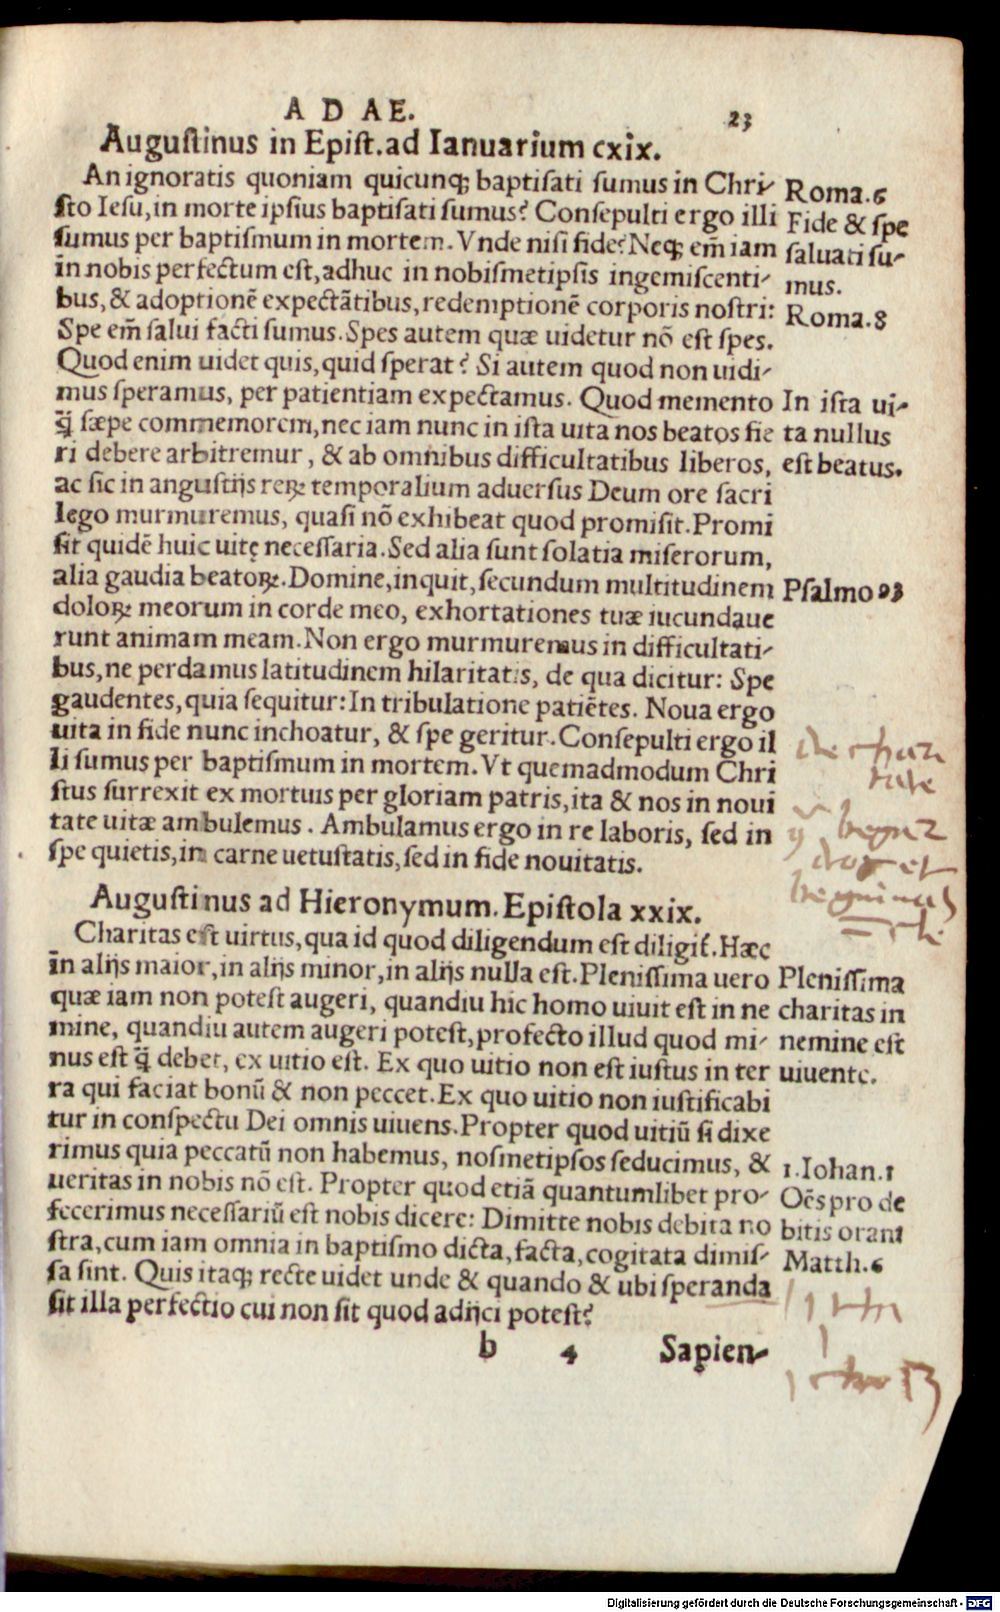 A D AE. 23
Augustinus in Epist. ad Ianuarium cxix.
An ignoratis quoniam quicunq; baptisati sumus in Chri-
sto Iesu, in morte ipsius baptisati sumus? Consepulti ergo illi
sumus per baptismum in mortem. Vnde nisi fide? Neq; em̃ iam
in nobis perfectum est, adhuc in nobismetipsis ingemiscenti-
bus, & adoptionẽ expectãtibus, redemptionẽ corporis nostri:
Spe em̃ salui facti sumus. Spes autem quæ uidetur nõ est spes.
Quod enim uidet quis, quid sperat? Si autem quod non uidi-
mus speramus, per patientiam expectamus. Quod memento
q̃ sæpe commemorem, nec iam nunc in ista uita nos beatos fie
ri debere arbitremur, & ab omnibus difficultatibus liberos,
ac sic in angustijs reꝝ temporalium aduersus Deum ore sacri
lego murmuremus, quasi nõ exhibeat quod promisit. Promi
sit quidẽ huic uitę necessaria. Sed alia sunt solatia miserorum,
alia gaudia beatoꝝ. Domine, inquit, secundum multitudinem
doloꝝ meorum in corde meo, exhortationes tuæ iucundaue
runt animam meam. Non ergo murmuremus in difficultati-
bus, ne perdamus latitudinem hilaritatis, de qua dicitur: Spe
gaudentes, quia sequitur: In tribulatione patiẽtes. Noua ergo
uita in fide nunc inchoatur, & spe geritur. Consepulti ergo il
li sumus per baptismum in mortem. Vt quemadmodum Chri
stus surrexit ex mortuis per gloriam patris, ita & nos in noui
tate uitæ ambulemus. Ambulamus ergo in re laboris, sed in
spe quietis, in carne uetustatis, sed in fide nouitatis.
Roma.6
Fide & spe
saluati su-
mus.
Roma.8
In ista ui-
ta nullus
est beatus.
Psalmo 93
Augustinus ad Hieronymum. Epistola xxix.
Charitas est uirtus, qua id quod diligendum est diligiť. Hæc
in alijs maior, in alijs minor, in alijs nulla est. Plenissima uero
quæ iam non potest augeri, quandiu hic homo uiuit est in ne
mine, quandiu autem augeri potest, profecto illud quod mi-
nus est q̃ debet, ex uitio est. Ex quo uitio non est iustus in ter
ra qui faciat bonũ & non peccet. Ex quo uitio non iustificabi
tur in conspectu Dei omnis uiuens. Propter quod uitiũ si dixe
rimus quia peccatũ non habemus, nosmetipsos seducimus, &
ueritas in nobis nõ est. Propter quod etiã quantumlibet pro-
fecerimus necessariũ est nobis dicere: Dimitte nobis debita no
stra, cum iam omnia in baptismo dicta, facta, cogitata dimis-
sa sint. Quis itaq; recte uidet unde & quando & ubi speranda
sit illa perfectio cui non sit quod adijci potest?
Plenissima
charitas in
nemine est
uiuente.
1.Iohan.1
Oẽs pro de
bitis orant
Matth.6
b 4 Sapien-
Digitalisierung gefördert durch die Deutsche Forschungsgemeinschaft - DFG